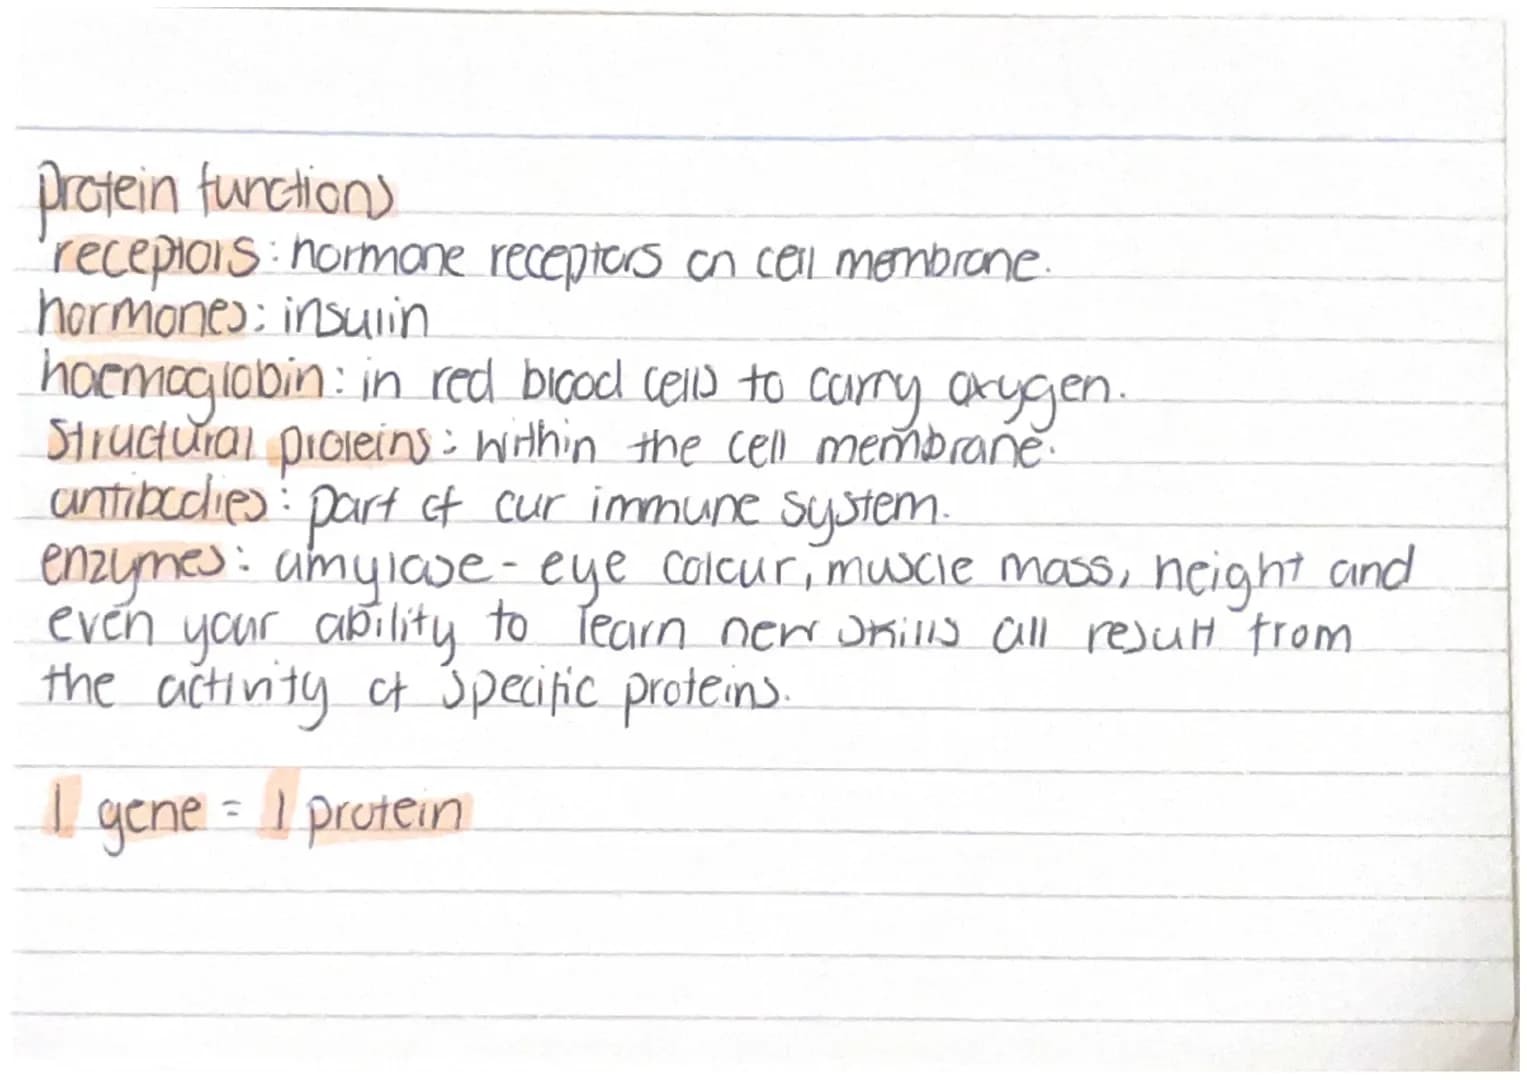 protein functions
receptors: hormone receptors on cell membrane.
hormones: insulin
haemoglobin: in red blood cells to carry oxygen.
Structural proteins: within the cell membrane.
antibodies: part of our immune system.
enzymes: amylase - eye colour, muscle mass, height and
even your ability to learn new skills all result from
the activity of specific proteins.
1 gene = 1 protein